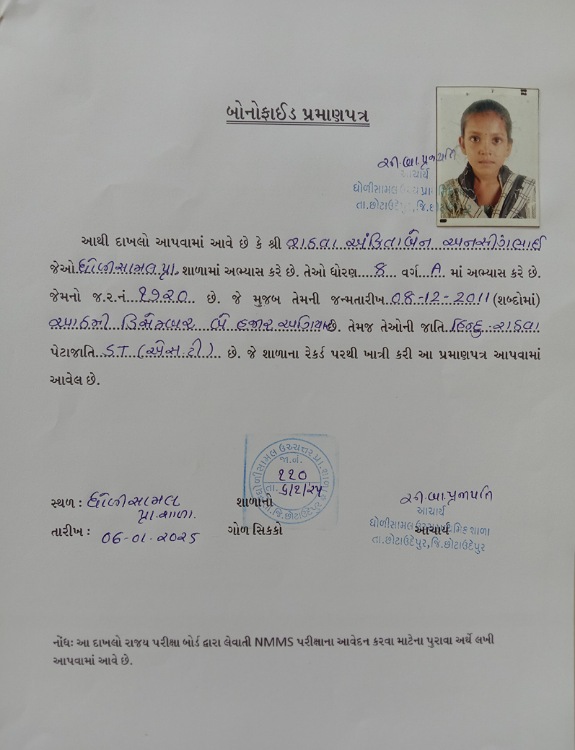 બોનોફાઈડ પ્રમાણપત્ર
આચાર્ય
ધોળીસામલ ઉચ્ચ પ્રા.
તા.છોટાઉદેપુર, જિ.છો
આથી દાખલો આપવામાં આવે છે કે શ્રી રાઠવા અંકિતાબેન અનસીંગભાઈ
જેઓ ધોળીસામલ પ્રા. શાળામાં અભ્યાસ કરે છે. તેઓ ધોરણ 8 વર્ગ A માં અભ્યાસ કરે છે.
જેમનો જ.ર.નં ૧૭૨૦ છે. જે મુજબ તેમની જન્મતારીખ 08-12-2011 (શબ્દોમાં)
આઠમી ડિસેમ્બર બે હજાર અગિયાર છે. તેમજ તેઓની જાતિ હિન્દુ રાઠવા
પેટાજાતિ ST (એસ.ટી) છે. જે શાળાના રેકર્ડ પરથી ખાત્રી કરી આ પ્રમાણપત્ર આપવામાં
આવેલ છે.
જા.નં.
૧૧૦
તા. ૬/૧/૨૫
સ્થળ : ધોળીસામલ
પ્રા.શાળા.
તારીખ : 06-01-2025
શાળાનો
ગોળ સિક્કો
આચાર્ય
ધોળીસામલ ઉચ્ચ શાળા
આચાર્ય
તા.છોટાઉદેપુર,જિ.છોટાઉદેપુર
નોંધઃ આ દાખલો રાજય પરીક્ષા બોર્ડ દ્વારા લેવાતી NMMS પરીક્ષાના આવેદન કરવા માટેના પુરાવા અર્થે લખી
આપવામાં આવે છે.